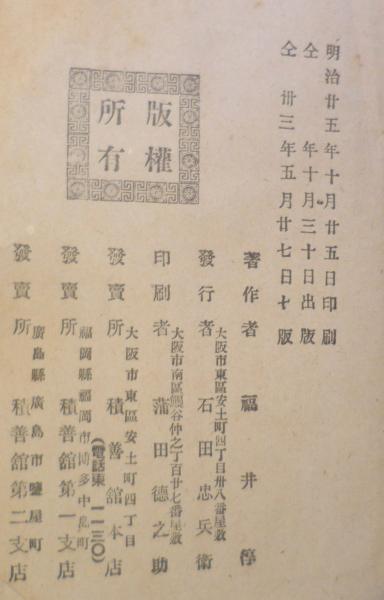 明治廿五年十月廿五日印刷
仝 年十月三十日出版
仝 卅三年五月廿七日七版
版權
所有
著作者 福井停
大阪市東區安土町四丁目卅八番屋敷
發行者 石田忠兵衛
大阪市南區鰻谷仲之丁百廿七番屋敷
印刷者 蒲田德之助
大阪市東區安土町四丁目
發賣所 積善館本店
(電話東一一三〇)
福岡縣福岡市博多中島町
發賣所 積善館第一支店
廣島縣廣島市鹽屋町
發賣所 積善館第二支店